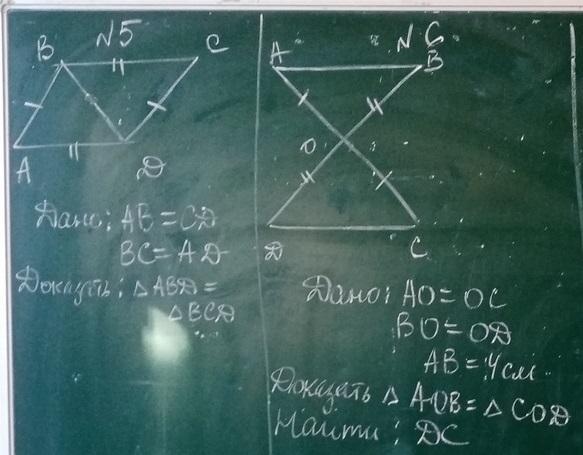 N5
B C
A D
Дано: AB = CD
BC = AD
Доказать: △ ABD =
△ BCD
N 6
A B
O
D C
Дано: AO = OC
BO = OD
AB = 4 см.
Доказать △ AOB = △ COD
Найти: DC